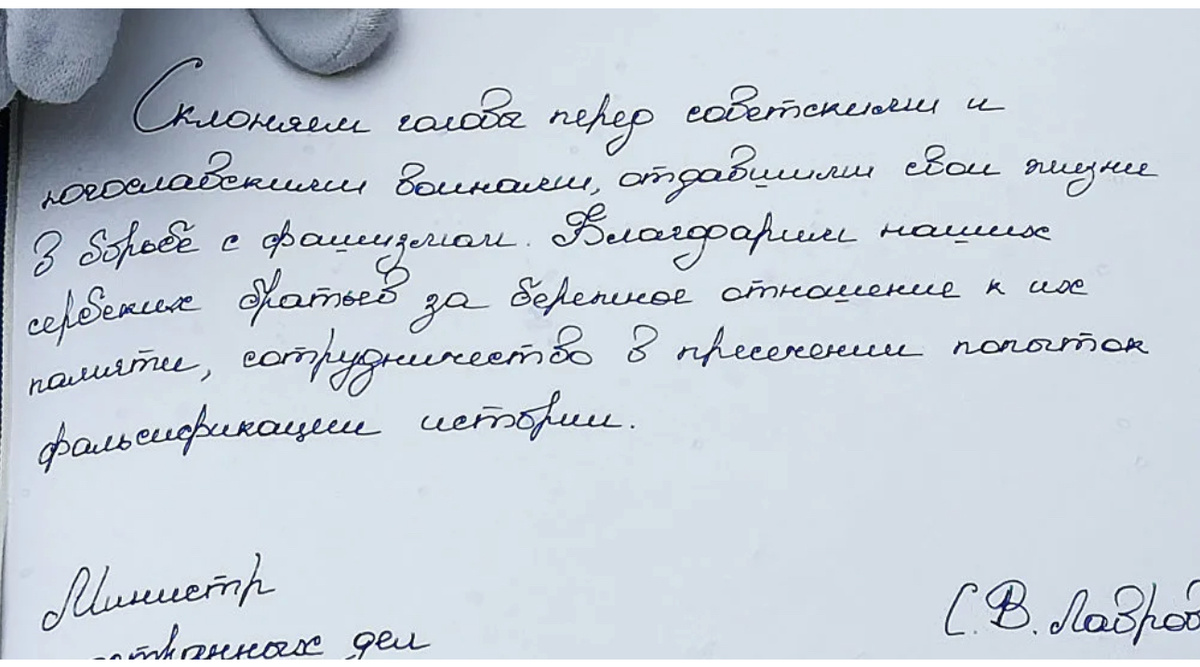 Склоняем головы перед советскими и
югославскими воинами, отдавшими свои жизни
в борьбе с фашизмом. Благодарим наших
сербских братьев за бережное отношение к их
памяти, сотрудничество в пресечении попыток
фальсификации истории.
Министр
странных дел
С.В. Лавров